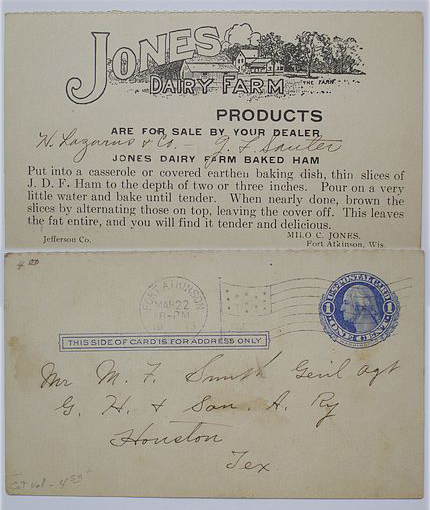 JONES
DAIRY FARM
THE FARM
PRODUCTS
ARE FOR SALE BY YOUR DEALER
W. Lazarus & Co. — J. F. Sauter
JONES DAIRY FARM BAKED HAM
Put into a casserole or covered earthen baking dish, thin slices of
J. D. F. Ham to the depth of two or three inches. Pour on a very
little water and bake until tender. When nearly done, brown the
slices by alternating those on top, leaving the cover off. This leaves
the fat entire, and you will find it tender and delicious.
Jefferson Co. MILO C. JONES.
Fort Atkinson, Wis.
FORT ATKINSON
MAR 22
8-PM
U.S. POSTAL CARD
1 1
ONE CENT
THIS SIDE OF CARD IS FOR ADDRESS ONLY
Mr M. F. Smith Genl Agt
G. H. & San. A. Ry
Houston
Tex